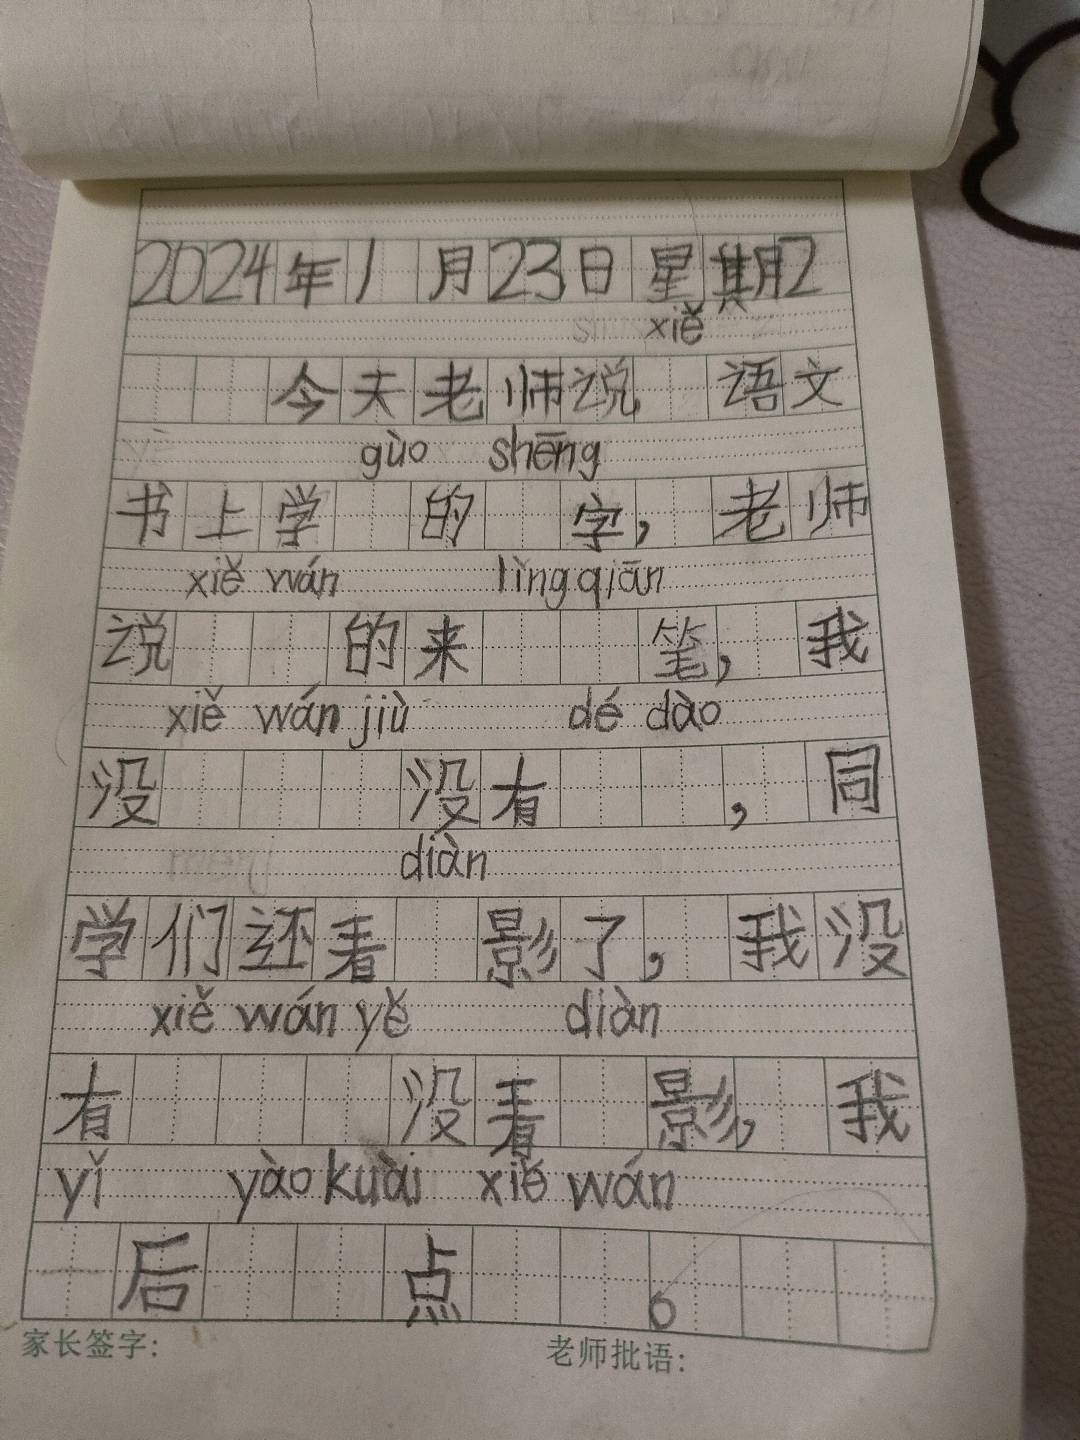 2024年1月23日星期2
xiě
今天老师说 语文
gùo shēng
书上学 的 字，老师
xiě wán lìng qiān
说 的来 笔，我
xiě wán jiù dé dào
没 没有 ，同
diàn
学们还看 影了，我没
xiě wán yě diàn
有 没看 影，我
yǐ yào kuài xiě wán
后 点 。
家长签字： 老师批语：